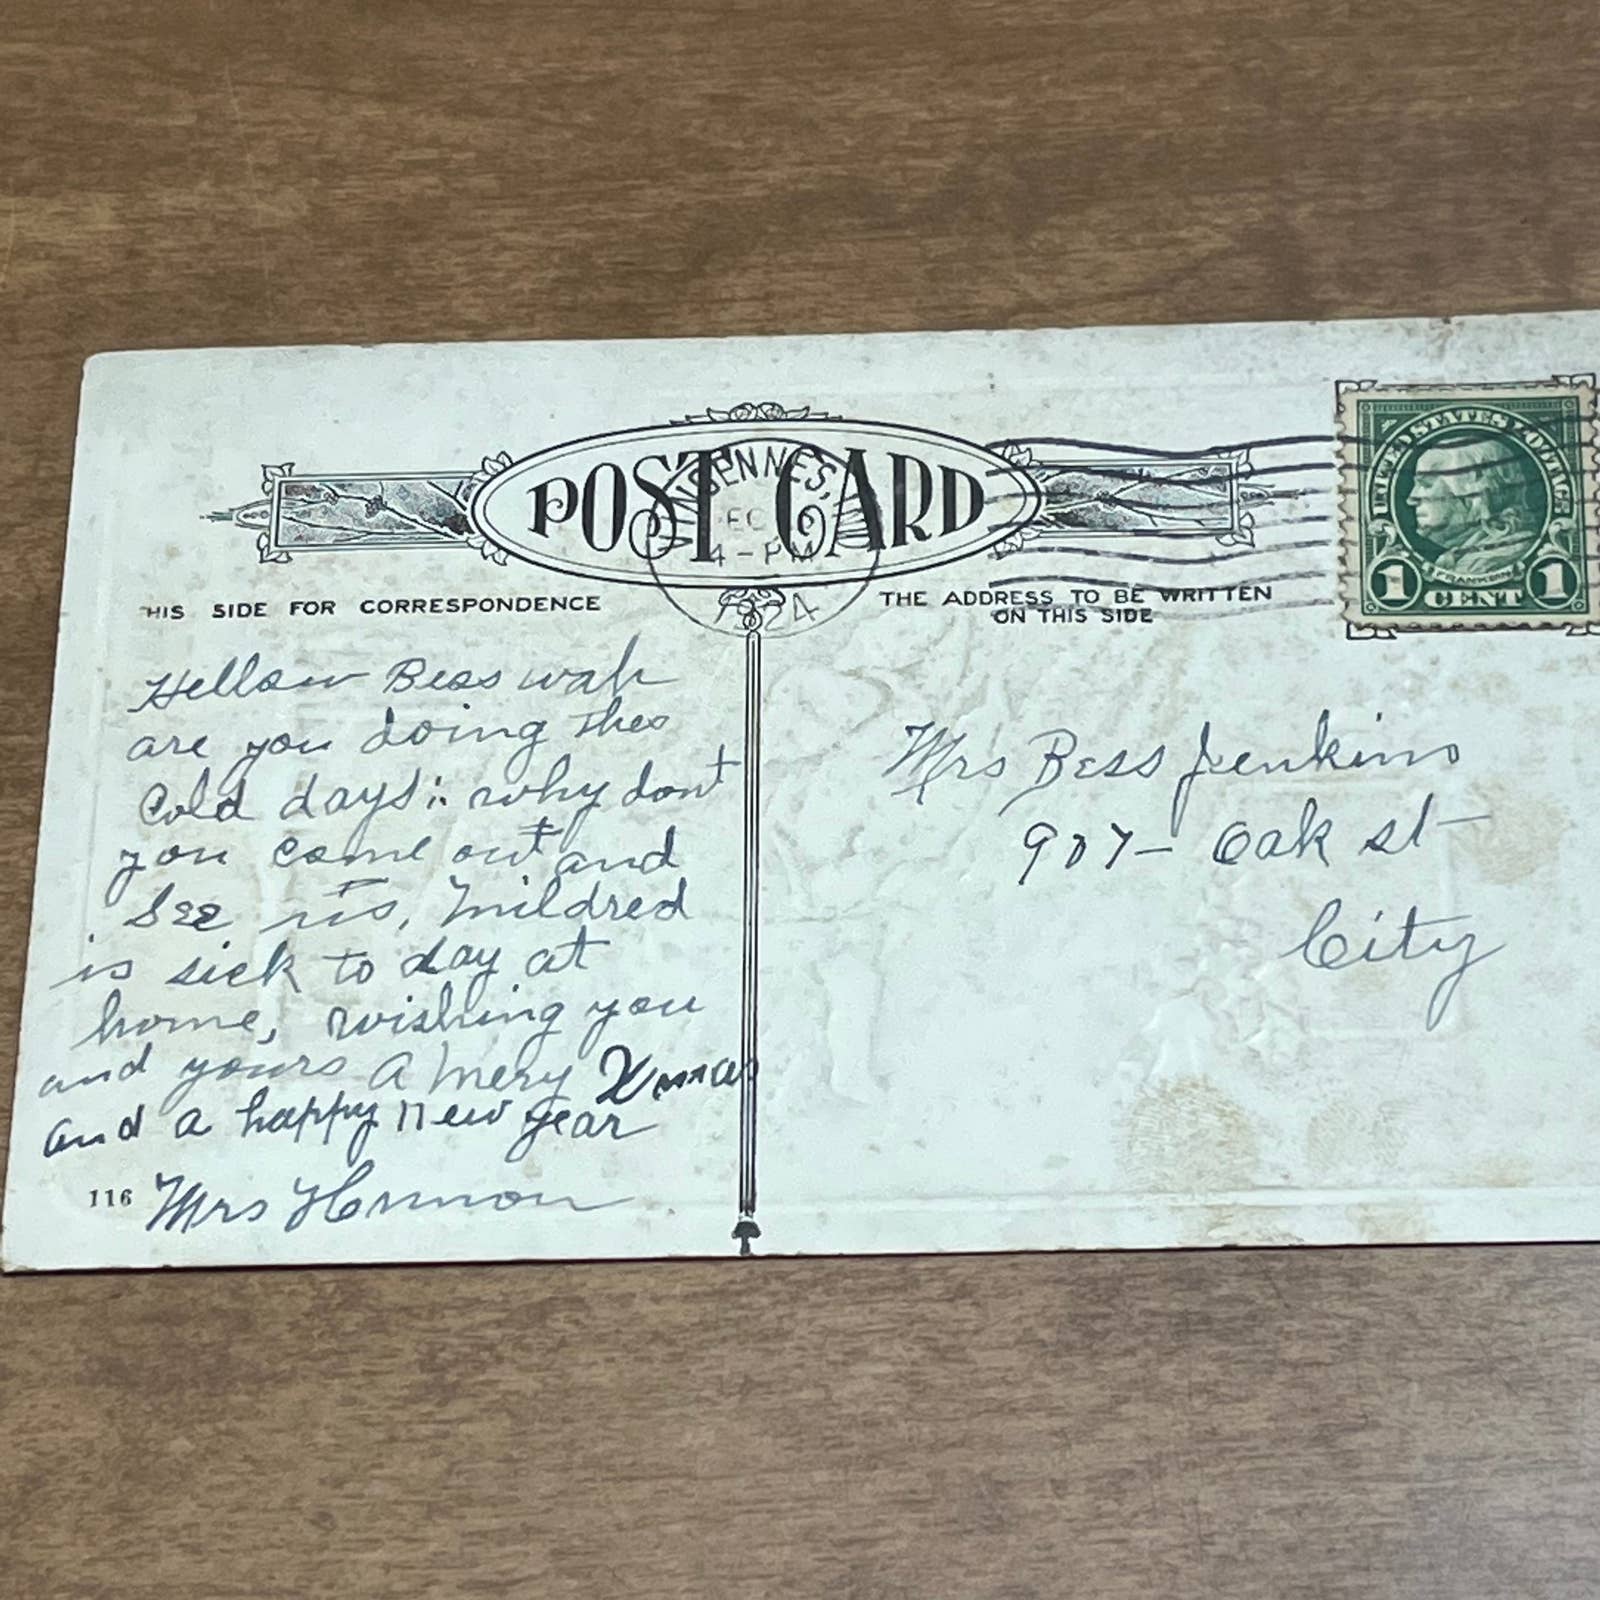 POST CARD
VINCENNES,
4-PM
1924
UNITED STATES POSTAGE
FRANKLIN
1 CENT 1
HIS SIDE FOR CORRESPONDENCE
THE ADDRESS TO BE WRITTEN
ON THIS SIDE
Hellow Bess wah
are you doing thes
Cold days: why dont
you come out and
See us, Mildred
is sick to day at
home, wishing you
and yours a mery Xmas
and a happy new year
116 Mrs
Mrs Bess Jenkins
907- Oak st
City